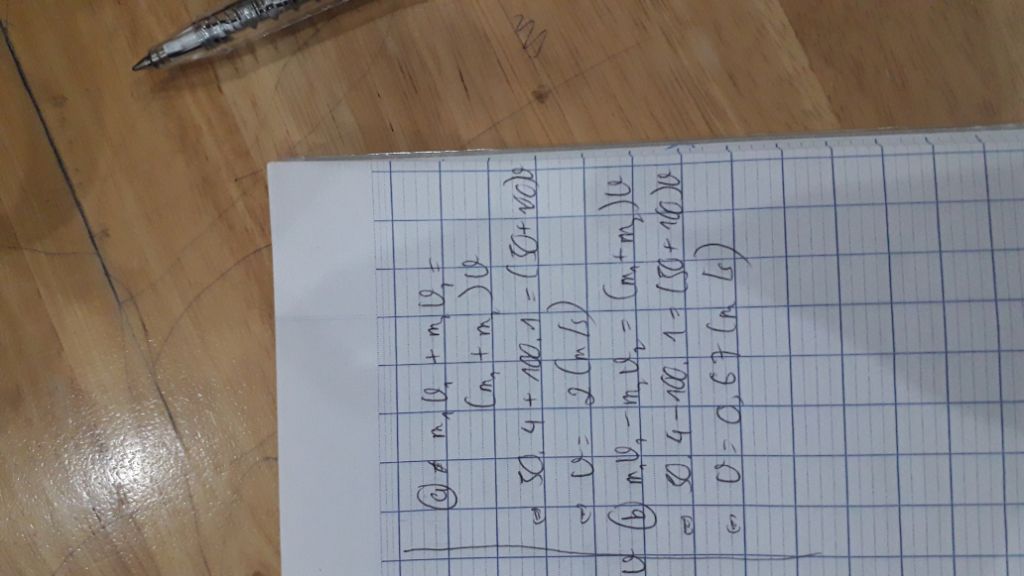 a) m₁v₁ + m₂v₂ =
(m₁ + m₂) v
⇔ 50. 4 + 100. 1 = (50 + 100)v
⇔ v = 2 (m/s)
b) m₁v₁ - m₂v₂ = (m₁ + m₂) v
⇔ 50. 4 - 100. 1 = (50 + 100) v
⇔ v = 0,67 (m/s)